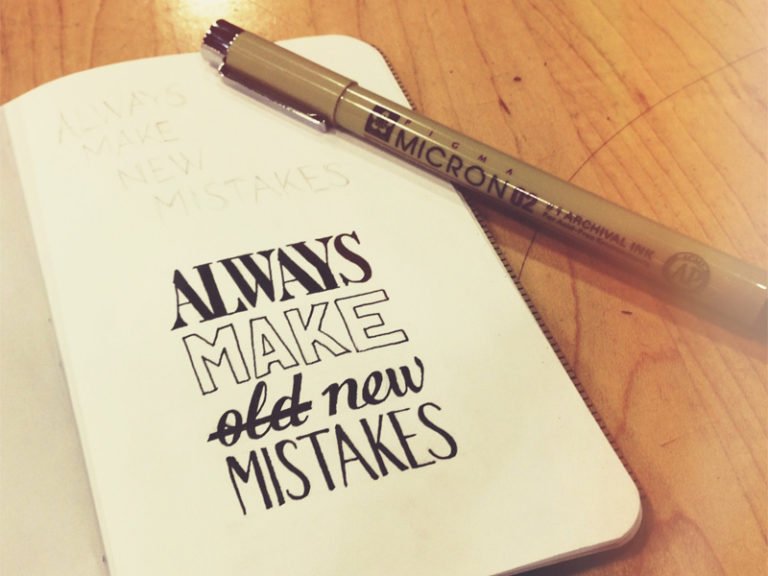 ALWAYS
MAKE
NEW
MISTAKES
ALWAYS
MAKE
old new
MISTAKES
PIGMA
MICRON 02
ARCHIVAL INK